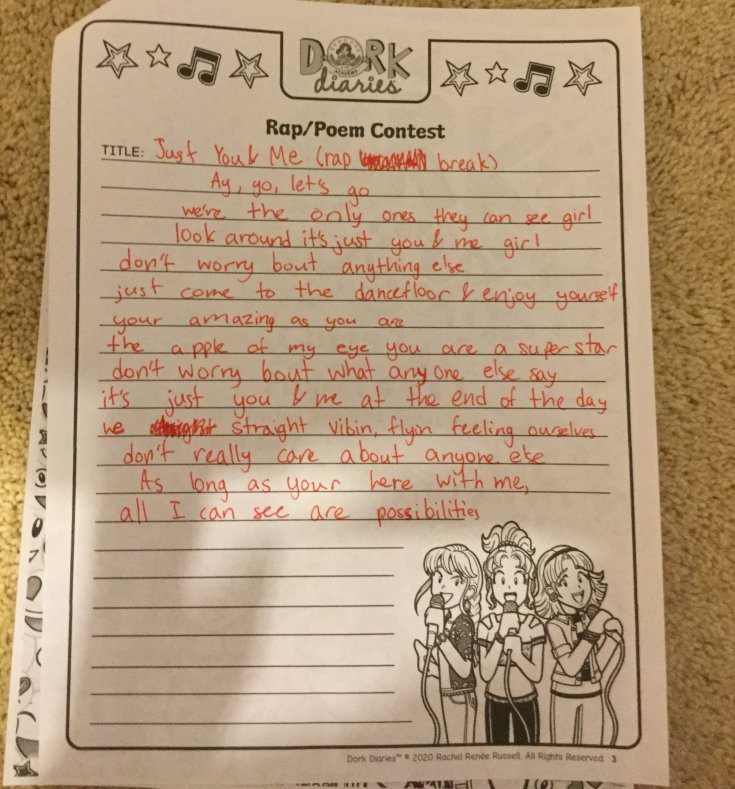 DORK
diaries
Rap/Poem Contest
TITLE: Just You & Me (rap break)
Ay, yo, let's go
we're the only ones they can see girl
look around it's just you & me girl
don't worry bout anything else
just come to the dancefloor & enjoy yourself
your amazing as you are
the apple of my eye you are a super star
don't worry bout what any one else say
it's just you & me at the end of the day
we straight vibin, flyin feeling ourselves
don't really care about anyone else
As long as your here with me,
all I can see are possibilities
Dork Diaries™ © 2020 Rachel Renée Russell. All Rights Reserved. 3